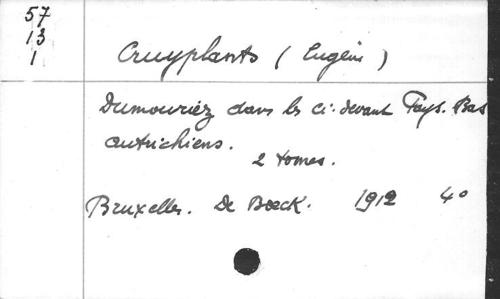 57
13
1
Cruyplants (Eugène)
Dumouriez dans les ci-devant Pays-Bas
autrichiens.
2 tomes.
Bruxelles. De Boeck. 1912 4o